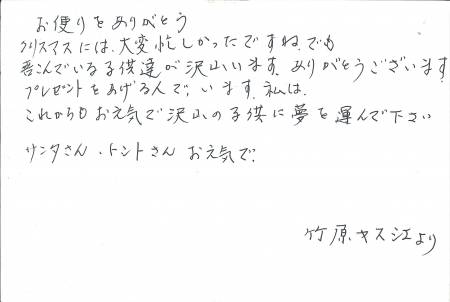 お便りをありがとう
クリスマスには、大変忙しかったですね、でも
喜こんでいる子供達が沢山います、ありがとうございます、
プレゼントをあげる人で、います、私は、
これからもお元気で沢山の子供に夢を運んで下さい
サンタさん、トントさん お元気で、
竹原ヤス江より